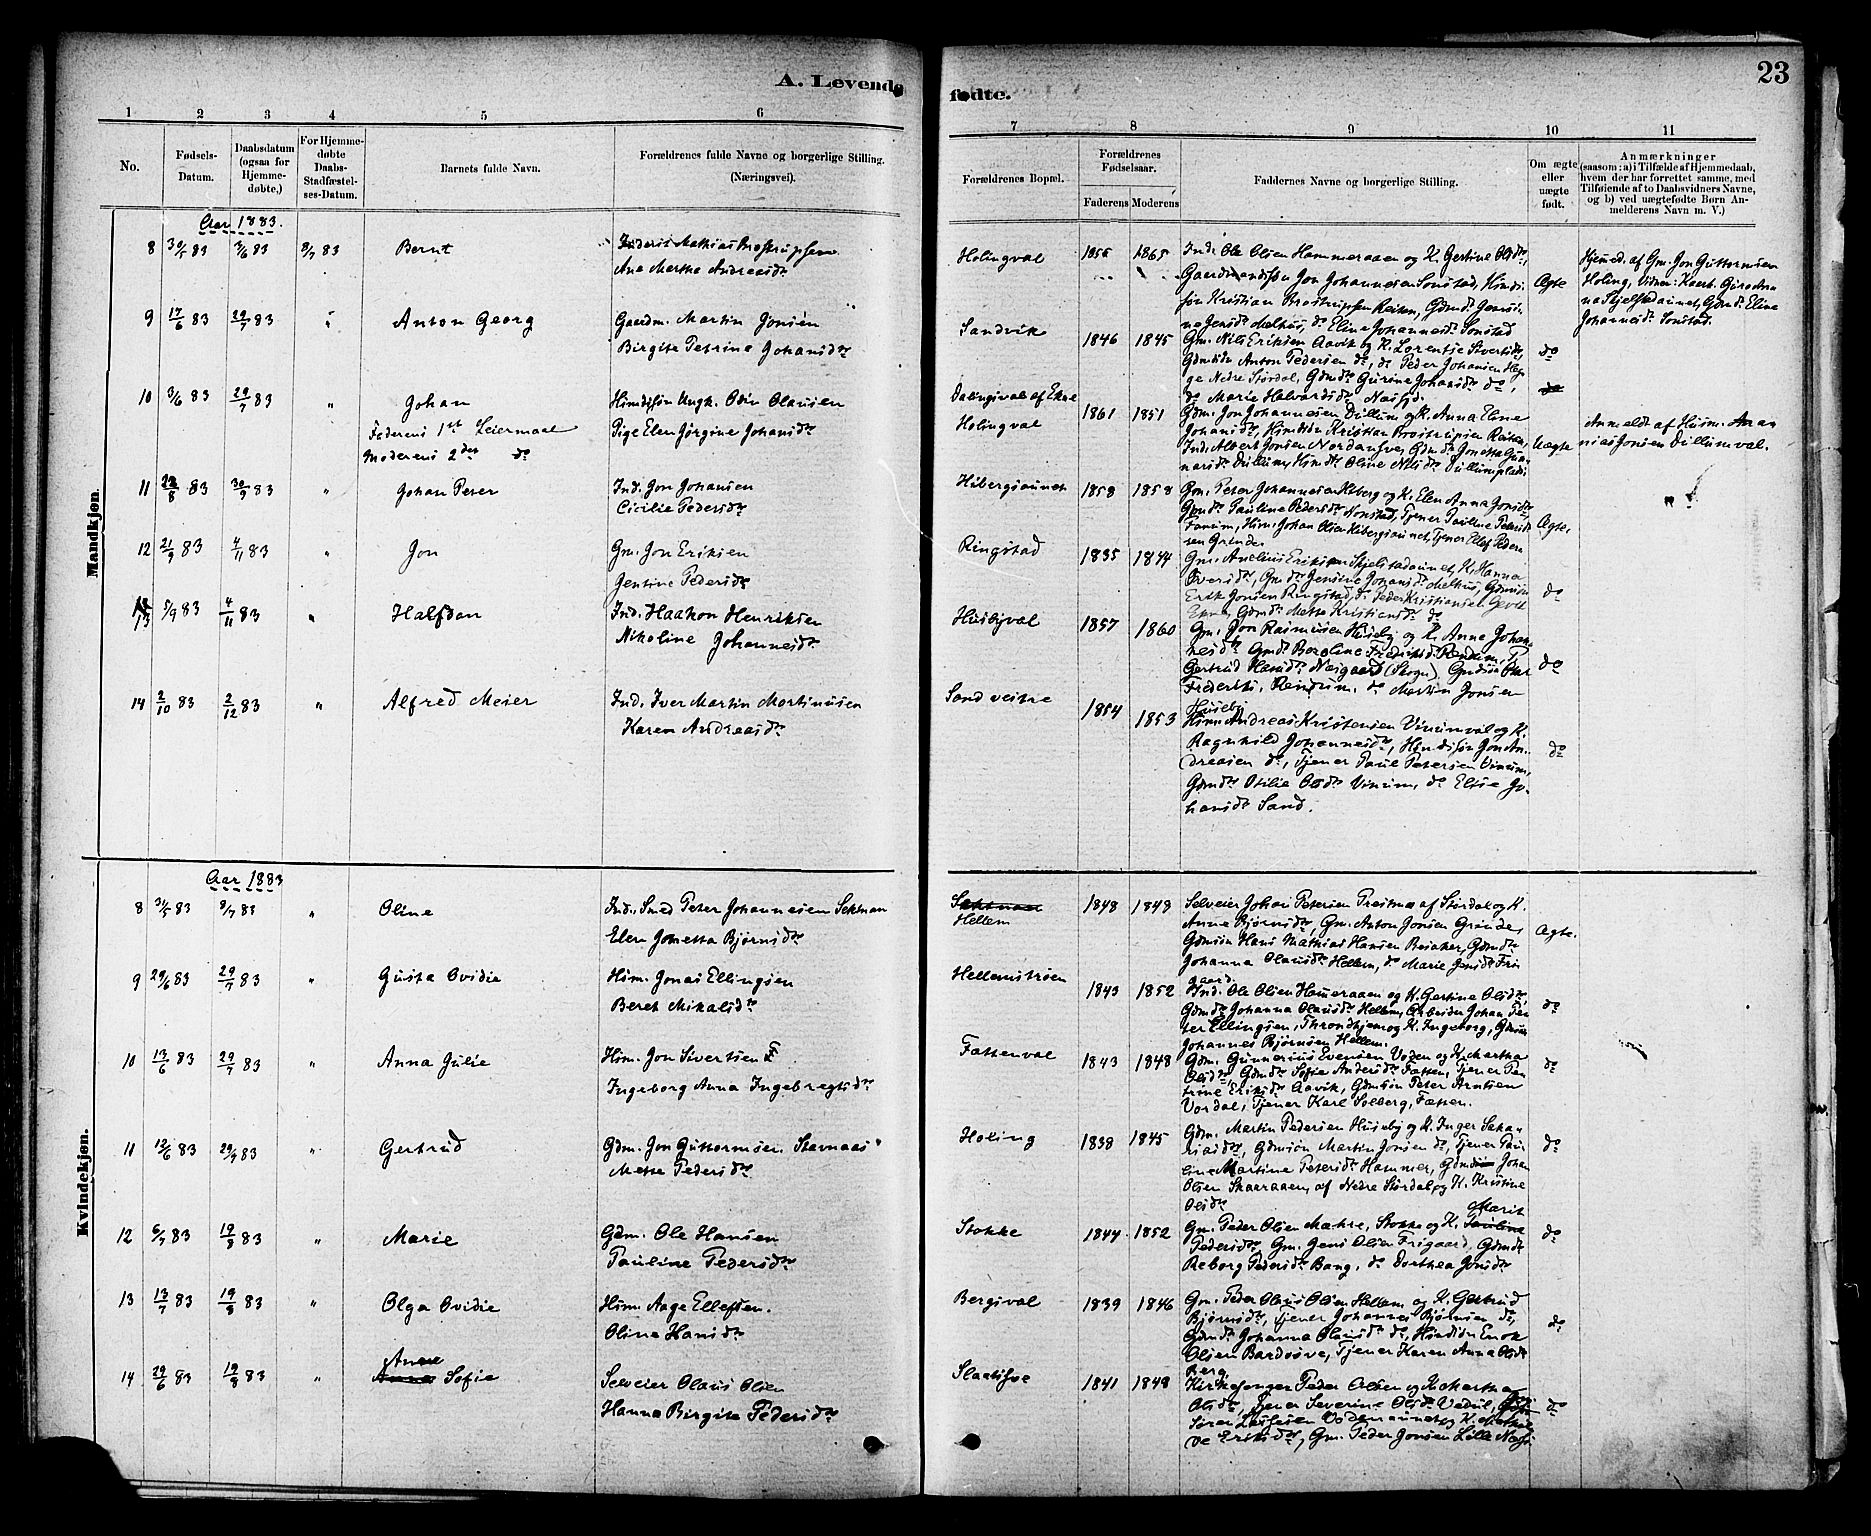 A. Levende
fødte.
23
1 2 3 4 5 6
7 8 9 10 11
No.
Fødsels-
Datum.
Daabsdatum
(ogsaa for
Hjemme-
døbte.)
For Hjemme-
døbte
Daabs-
Stadfæstel-
ses-Datum.
Barnets fulde Navn.
Forældrenes fulde Navne og borgerlige Stilling.
(Næringsvei).
Forældrenes Bopæl.
Forældrenes
Fødselsaar.
Faderens Moderens
Faddernes Navne og borgerlige Stilling.
Om ægte
eller
uægte
født.
Anmærkninger
(saasom: a) i Tilfælde af Hjemmedaab,
hvem der har forrettet samme, med
Tilføiende af to Daabsvidners Navne,
og b) ved uægtefødte Børn An-
melderens Navn m. V.)
Mandkjøn.
Aar 1883.
8 30/5 83 3/6 83 8/7 83 Bernt
Inderst Mathias Brostrupsen
Ane Martha Andreasdr
Holingval 1855 1865
Ind. Ole Olsen Hammeraaen og K. Gertine Olsdr,
Gaardmandssøn Jon Johannesen Sonstad, Hmds
søn Kristian Brostrupsen Reiten, Gdmdr Jensi
ne Jensdr Melhus, do Eline Johannesdr Sonstad
Ægte
Hjemmed. af Gm. Jon Guttormsen
Holing, Vidner: Kaarb. Guro An
na Skjelstadaunet, Gdmdr Eline
Johannesdr Sonstad.
9 17/6 83 29/7 83 " Anton Georg
Gaardm. Martin Jonsen
Birgite Petrine Johansdr
Sandvik 1846 1845
Gm. Nils Eriksen Aavik og K. Lorentse Sivertsdr,
Gdmssøn Anton Pedersen do, do Peder Johansen Heg
ge Nedre Størdal, Gdmdr Gurine Johansdr do,
do Marie Halvordsdr Næssjd.
do
10 3/6 83 29/7 83 " Johan
Faderens 1st Leiermaal
Moderens 2det do
Himdssøn Ungk. Odin Olausen
Pige Elen Jørgine Johansdr
Dalingsval af Ekne
Holingval
1861 1851
Gdm. Jon Johannesen Dillum og K. Anna Elne
Johansdr, Hmdssøn Kristian Brostrupsen Reiten,
Ind. Albert Jonsen Nordangve, Gdmdr Jonetta Gun
narsdr Dillum, Hmdr Oline Nilsdr Dillumplads
Uægte
Anmeldt af Husm. Ana
nias Jonsen Dillumval.
11 22/8 83 30/9 83 " Johan Peter
Ind. Jon Johansen
Cicilie Pedersdr
Hibergsaunet 1858 1858
Gm. Peter Johannesen Hiberg og K. Elen Anna Jonsdr,
Gmdr Pauline Pedersdr Nonstad, Tjener Pauline Petersdr
Fanum, Husm. Johan Olsen Hibergsaunet, Tjener Ellef Peder
sen Grinde
Ægte,
12 21/9 83 4/11 83 " Jon
Gm. Jon Eriksen
Jentine Pedersdr
Ringstad 1835 1844
Gm. Anelius Eriksen Skjelstadaunet, K. Hanna
Iversdr, Gmdr Jensine Johansdr Melhus, Gdmssøn
Erik Jonsen Ringstad, do Peder Kristiansen Gevik
Ekne, Gdmdr Mette Kristiansdr do
do
13 5/9 83 4/11 83 " Halfdan
Ind. Haakon Henriksen
Nikoline Johannesdr
Husbyval 1857 1860
Gm. Jon Rasmussen Huseby og K. Anne Johan
nesdr, Gmdr Boroline Fredriksdr Rendum,
Gertrud Hansdr Næsgaard (Skogn), Gmdssøn
Frederiks. Rendum, do Martin Jonsen
Huseby
do
14 2/10 83 2/12 83 " Alfred Meier
Ind. Iver Martin Martinusen
Karen Andreasdr
Sand vestre 1854 1853
Husm. Andreas Kristensen Vinumval og K.
Ragnhild Johannesdr, Hmdssøn Jon An-
dreasen do, Tjener Paul Petersen Vinum,
Gdmdr Otilie Olsdr Vinum, do Elise Jo-
hansdr Sand.
do
Kvindekjøn.
Aar 1883
8 31/5 83 8/7 83 " Oline
Ind. Smed Peter Johannesen Sektnan
Elen Jonetta Bjørnsdr
Sektnan
Hellem
1848 1848
Selveier Johan Petersen Preitnes af Stördal og K.
Anne Bjørnsdr, Gm. Anton Jonsen Grinde,
Gdmsøn Hans Mathias Hansen Besaker, Gdmdr
Johanna Olausdr Hellem, do Marie Jensdr Fri
gaard
Ægte.
9 29/6 83 29/7 83 " Gusta Ovidie
Husm. Jonas Ellingsen
Beret Mikalsdr
Hellemstrøen 1843 1852
Ind. Ole Olsen Hameraaen og K. Gertine Olsdr,
Gdmdr Johanna Olausdr Hellem, Arbeider Johan Pet
ter Ellingsen, Throndhjem og K. Ingeborg, Gdmssøn
Johannes Bjørnsen Hellem.
do
10 13/6 83 29/7 83 " Anna Julie
Husm. Jon Sivertsen F
Ingeborg Anna Ingebregtsdr
Fattenval 1843 1848
Gdm. Gunnerius Evensen Voden og K. Martha
Olsdr, Gdmdr Sofie Andersdr Fatten, Tjener Pet
rine Eriksdr Aavik, Gdmssøn Peter Arntsen
Vordal, Tjener Karl Solberg, Fatten.
do
11 12/6 83 29/7 83 " Gertrud
Gdm. Jon Guttormsen Stavnaas
Mette Pedersdr
Holing 1838 1845
Gdm. Martin Pedersen Huseby og K. Inger Saka-
riasdr, Gdmsøn Martin Jonsen do, Tjener Pau
line Martine Petersdr Hammer, Gdmssøn Johan
Olsen Skaaraaen, af Nedre Stördal og K. Kristine
Olsdr
do
12 6/7 83 19/8 83 " Marie
Gdm. Ole Hansen
Pauline Pedersdr
Stokke 1844 1852
Marit
Gm. Peder Olsen Mæhre, Stokke og K. Pauline
Pedersdr, Gm. Jens Olsen Frigaard, Gdmdr
Reborg Pedersdr Bang, do Dorthea Jonsdr
do
13 13/7 83 19/8 83 " Olga Ovidie
Husm. Aage Ellefsen.
Oline Hansdr
Bergsval 1839 1846
Gm. Peder Olaus Olsen Hellem og K. Gertrud
Bjørnsdr, Tjener Johannes Bjørnsen do,
Gdmdr Johanna Olausdr do, Hmdssøn Enok
Olsen Bardosve, Tjener Karen Anna Olsdr
Berg.
do
14 29/6 83 19/8 83 " Anne Sofie
Selveier Olaus Olsen
Hanna Birgitte Pedersdr
Slaatsve 1841 1848
Kirkesanger Peder Olsen og K. Martha
Olsdr, Tjener Severine Olsdr Vedul,
Søren Laussen Vodemaunet og K. Mathil
de Eriksdr, Gm. Peder Jonsen Lille Næss
do